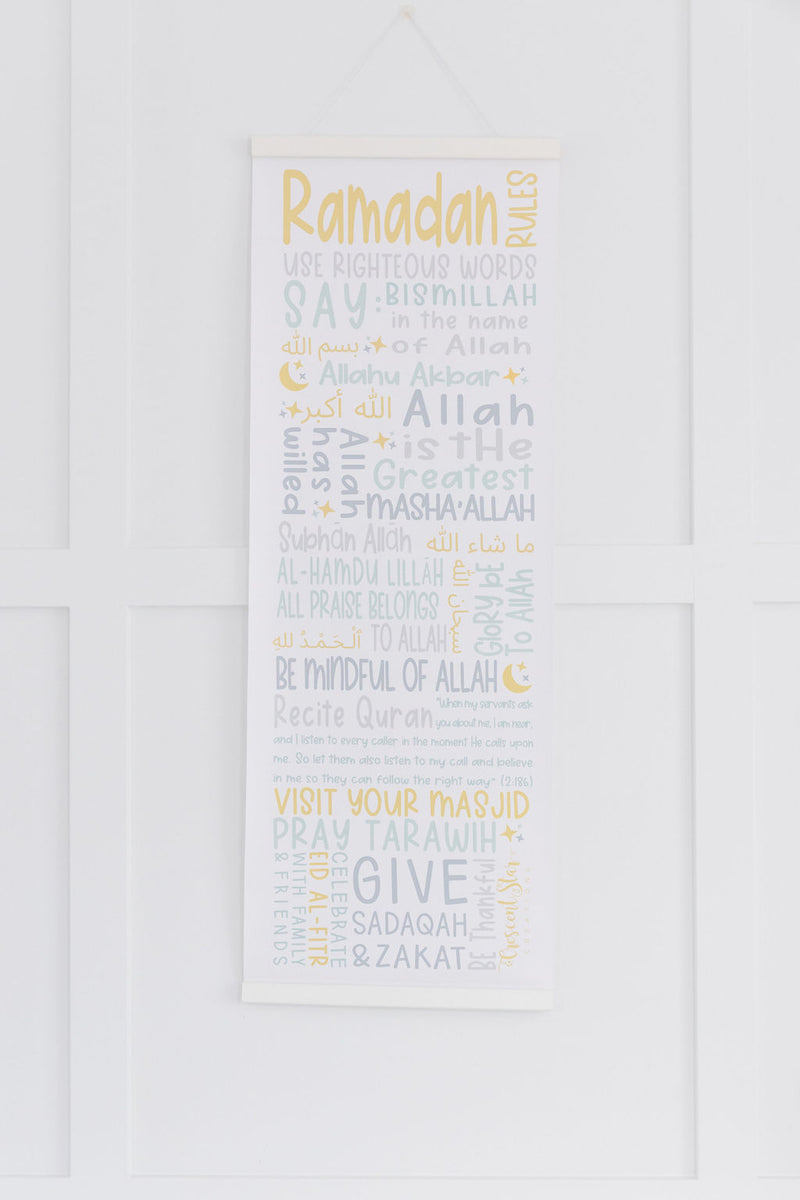 Ramadan RULES
USE RIGHTEOUS WORDS
SAY: BISMILLAH
in the name
بسم الله of Allah
Allahu Akbar
الله أكبر Allah
is tHe
Greatest
Allah
has
willed
MASHA'ALLAH
Subhān Allāh ما شاء الله
AL-HAMDU LILLĀH
ALL PRAISE BELONGS
اَلْحَمْدُ لِلهِ TO ALLAH
سبحان الله
GLORY bE
To AllAh
BE MINDFUL OF ALLAH
Recite Quran "When my servants ask
you about me, I am near,
and I listen to every caller in the moment He calls upon
me. So let them also listen to my call and believe
in me so they can follow the right way" (2:186)
VISIT YOUR MASJID
PRAY TARAWIH
CELEBRATE
EID AL-FITR
WITH FAMILY
& FRIENDS
GIVE
SADAQAH
& ZAKAT
BE Thankful
Crescent Star
CREATIONS